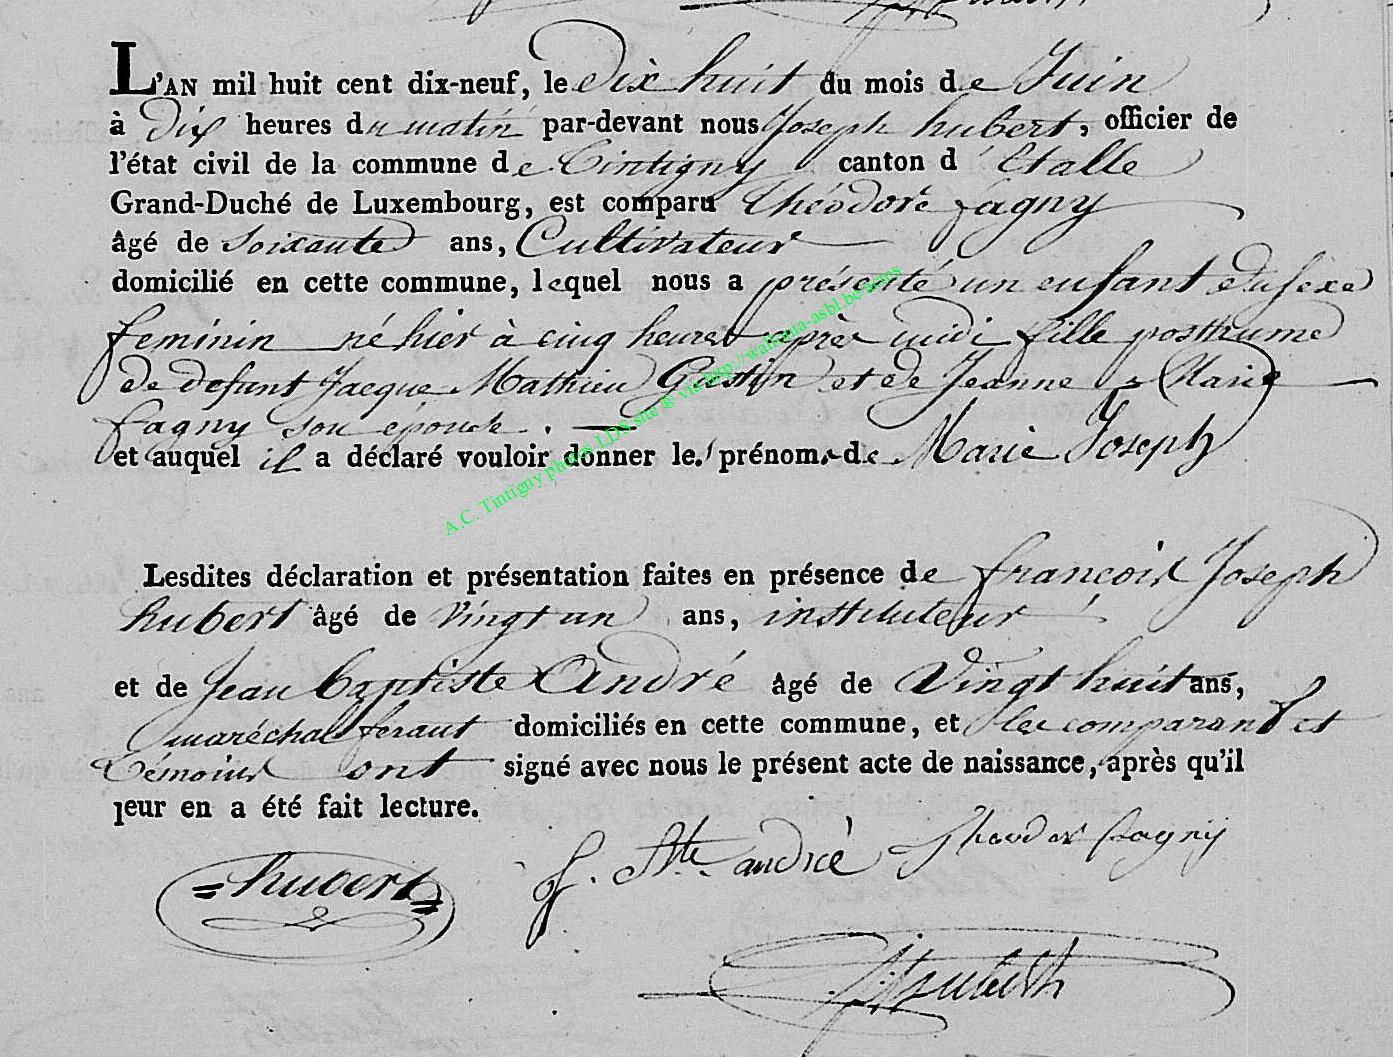 L'AN mil huit cent dix-neuf, le dix huit du mois de Juin
à dix heures du matin par-devant nous Joseph hubert, officier de
l'état civil de la commune de Tintigny canton d' Etalle
Grand-Duché de Luxembourg, est comparu théodore fagny
âgé de soixante ans, Cultivateur
domicilié en cette commune, lequel nous a présenté un enfant du sexe
feminin né hier à cinq heures après midi fille posthume
de defunt Jacque Mathieu Gustin et de Jeanne Marie
fagny son épouse.
et auquel il a déclaré vouloir donner les prénoms de Marie Joseph
Lesdites déclaration et présentation faites en présence de françois Joseph
hubert âgé de vingt un ans, instituteur
et de Jean baptiste André âgé de Vingt huit ans,
maréchal feraut domiciliés en cette commune, et les comparant et
témoins ont signé avec nous le présent acte de naissance, après qu'il
leur en a été fait lecture.
J. Bte. andrè theodor fagny
hubert
J. hubert
A.C. Tintigny photos LDS site @ via http://wallonia-asbl.be/actes